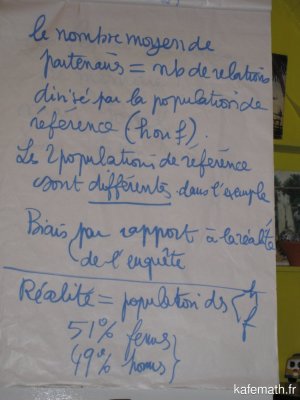 le nombre moyen de
partenaires = nb de relations
divisé par la population de
référence (h ou f).
Les 2 populations de référence
sont différentes dans l'exemple
Biais par rapport à la réalité
de l'enquête
Réalité = population ds { h
f
51% fems
49% homs
kafemath.fr